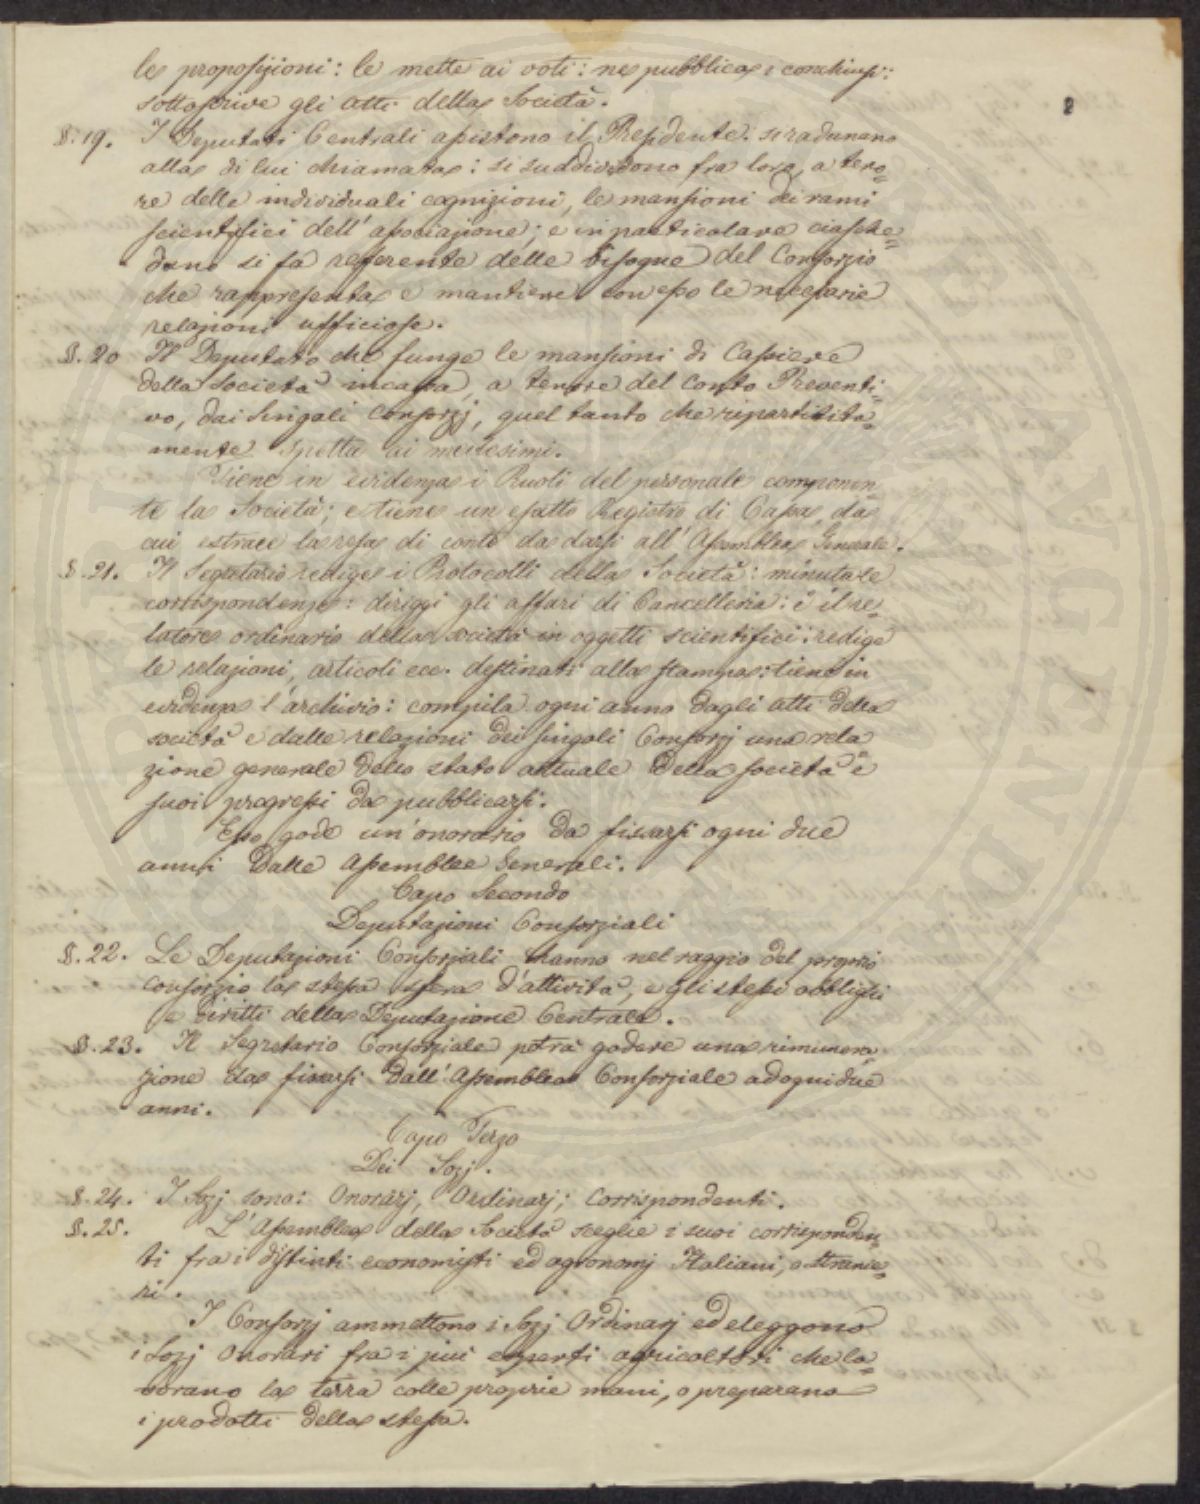 le proposizioni: le mette ai voti: ne pubblica i conchiusi:
sottoscrive gli atti della Società.
§. 19. I Deputati Centrali assistono il Presidente: si radunano
alla di lui chiamata: si suddividono fra loro, a teno-
re delle individuali cognizioni, le mansioni dei rami
scientifici dell'associazione; e in particolare ciasche-
duno si fa referente delle bisogne del Consorzio
che rappresenta e mantiene con esso le necessarie
relazioni ufficiose.
§. 20 Il Deputato che funge le mansioni di Cassiere
della Società incassa, a tenore del Conto Preventi-
vo, dai singoli Consorzj, quel tanto che ripartitita-
mente spetta ai medesimi.
Tiene in evidenza i Ruoli del personale componen-
te la Società; e tiene un esatto Registro di Cassa, da
cui estrae la resa di conto da darsi all'Assemblea Generale.
§. 21. Il Segretario redige i Protocolli della Società: minuta le
corrispondenze: diriggi gli affari di Cancelleria: è il re-
latore ordinario della società in oggetti scientifici: redige
le relazioni, articoli ecc. destinati alla stampa: tiene in
evidenza l'archivio: compila ogni anno dagli atti della
società e dalle relazioni dei singoli Consorzj una rela
zione generale dello stato attuale della società e
suoi progressi da pubblicarsi.
Esso gode un'onorario da fissarsi ogni due
anni dalle Assemblee Generali.
Capo Secondo
Deputazioni Consorziali
§. 22. Le Deputazioni Consorziali hanno nel raggio del proprio
Consorzio la stessa sfera d'attività, e gli stessi obblighi
e diritti della Deputazione Centrale.
§. 23. Il Segretario Consorziale potrà godere una rimunera-
zione da fissarsi dall'Assemblea Consorziale ad ogni due
anni.
Capo Terzo
Dei Sozj.
§. 24. I Sozj sono: Onorarj, Ordinarj; Corrispondenti.
§. 25. L'Assemblea della Società sceglie i suoi corrisponden-
ti fra i distinti economisti ed agronomj Italiani, o stranie-
ri.
I Consorzj ammettono i Sozj Ordinarj ed eleggono
i Sozj Onorari fra i più esperti agricoltori che la-
vorano la terra colle proprie mani, o preparano
i prodotti della stessa.